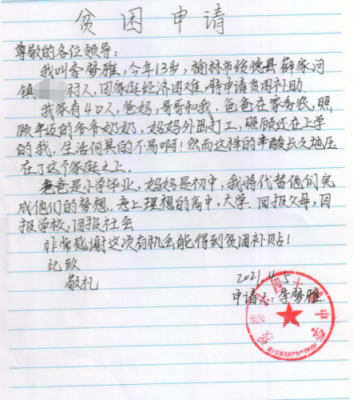 贫困申请
尊敬的各位领导:
我叫李梦雅,今年13岁,榆林市绥德县薛家河
镇 村人,因家庭经济困难,特申请贫困补助
我家有4口人,爸妈,哥哥和我.爸爸在家务农,照
顾年迈的爷爷奶奶,妈妈外出打工,照顾还在上学
的我.生活何其的不易啊!然而这样的辛酸长久地压
在了这个家庭之上.
爸爸是小学毕业、妈妈是初中,我将代替他们完
成他们的梦想.考上理想的高中,大学.回报父母,回
报学校,回报社会
非常感谢这次有机会能得到贫困补贴!
此致
敬礼 2021.4.5
申请人:李梦雅